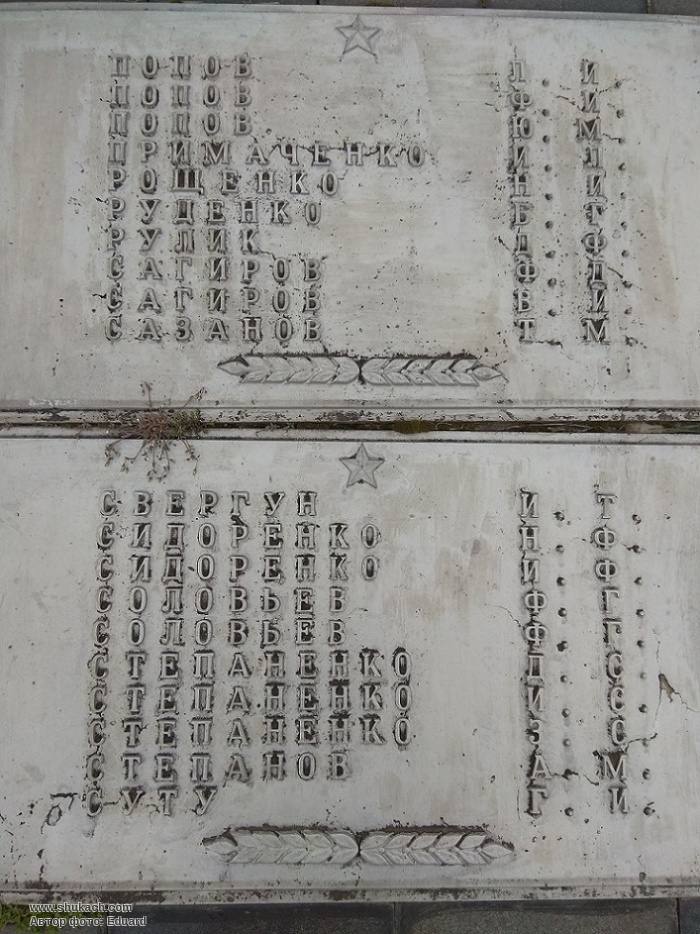 ПОПОВ Л. И.
ПОПОВ Ф. И.
ПОПОВ Ю. М.
ПРИМАЧЕНКО И. П.
РОЩЕНКО Н. И.
РУДЕНКО Б. Т.
РУЛИК Д. Ф.
САГИРОВ Ф. Д.
САГИРОВ В. И.
САЗАНОВ Т. М.
СВЕРГУН И. Т.
СИДОРЕНКО Н. Ф.
СИДОРЕНКО И. Ф.
СОЛОВЬЕВ Ф. Г.
СОЛОВЬЕВ Ф. Г.
СТЕПАНЕНКО Д. С.
СТЕПАНЕНКО И. С.
СТЕПАНЕНКО З. С.
СТЕПАНОВ А. М.
СУТУ Г. И.
www.shukach.com
Автор фото: Eduard